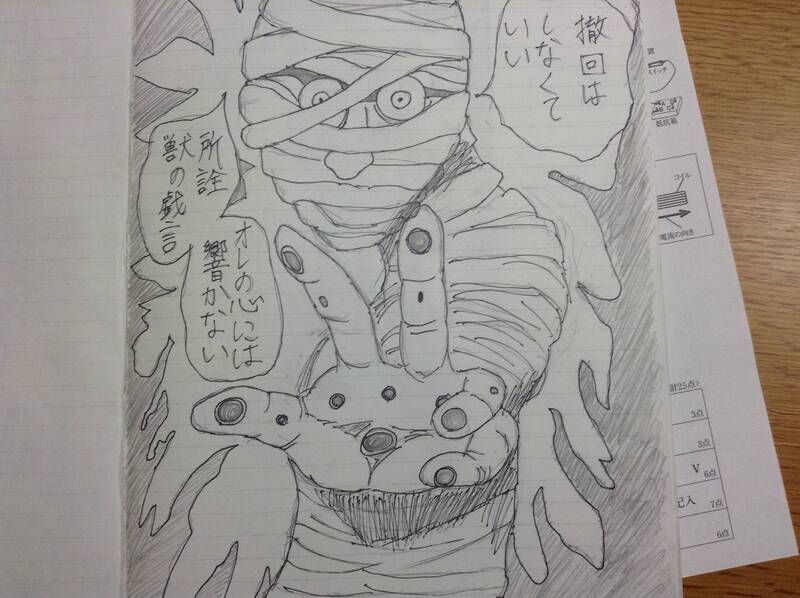 撤回は
しなくて
いい
所詮
獣の戯言
オレの心には
響かない
スイッチ
抵抗器
コイル
電流の向き
計25点)
3点
3点
V 6点
記入 7点
6点